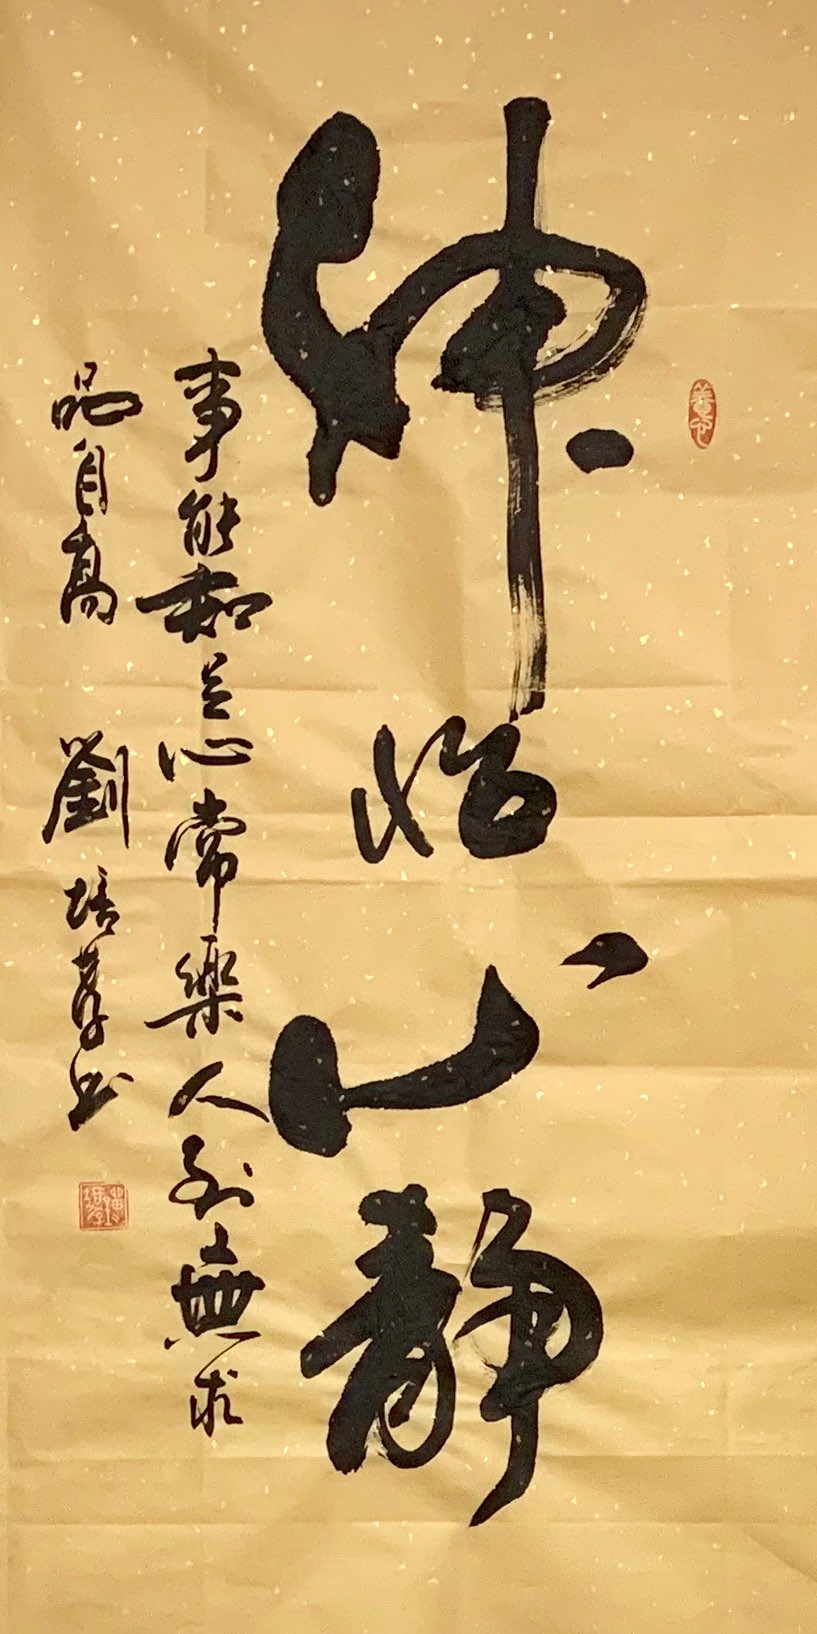 神怡心静
事能知足心常樂人到無求
品自高 劉培书